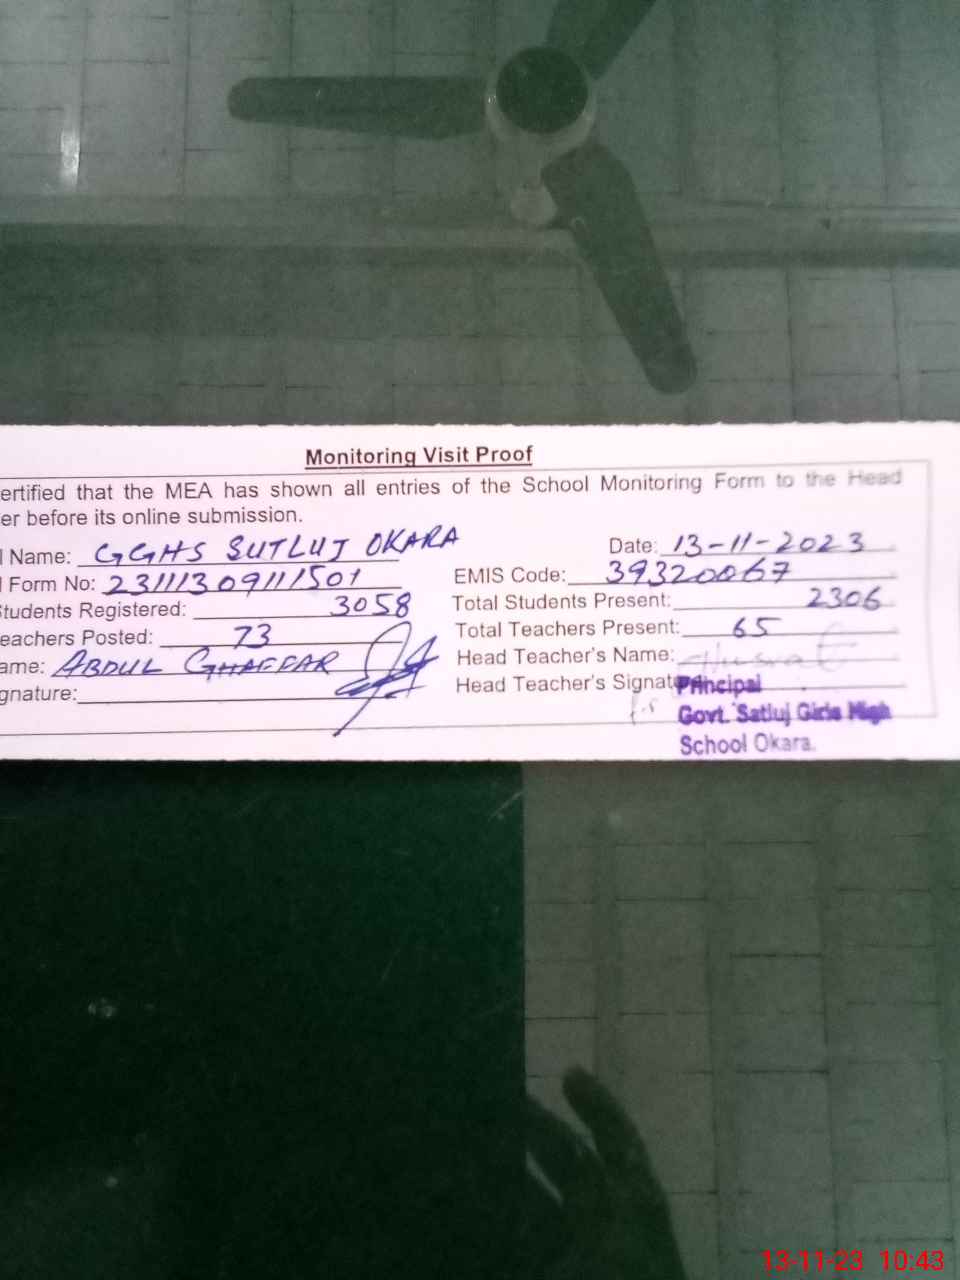 Monitoring Visit Proof
ertified that the MEA has shown all entries of the School Monitoring Form to the Head
er before its online submission.
l Name: GGHS SUTLUJ OKARA Date: 13-11-2023
Form No: 23111309111501 EMIS Code: 39320067
tudents Registered: 3058 Total Students Present: 2306
eachers Posted: 73 Total Teachers Present: 65
ame: ABDUL GHAFFAR Head Teacher's Name:
gnature: Head Teacher's Signat
Principal
Govt. Satluj Girls High
School Okara.
13-11-23 10:43